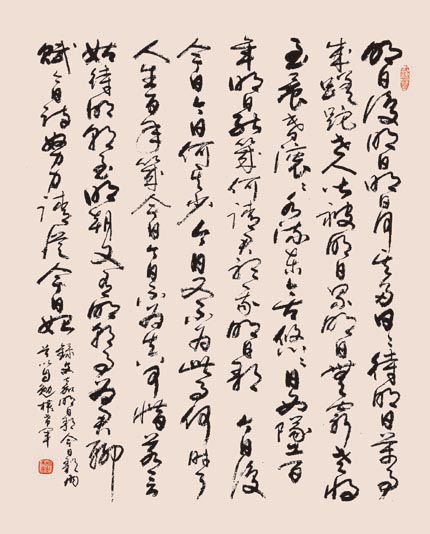 明日復明日明日何其多日日待明日萬事
成蹉跎世人皆被明日累明日無窮老將
至晨昏滾滾水流東今古悠悠日西墜百
年明日能幾何請君聽我明日歌 今日復
今日今日何其少今日又不為此事何時了
人生百年幾今日今日不為真可惜若言
姑待明朝至明朝又有明朝事為君聊
賦今日詩努力請從今日始
錄文嘉明日歌今日歌兩
首以自勉